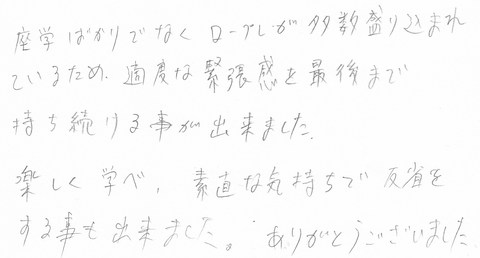 座学ばかりでなくロープレが多数盛り込まれ
ているため、適度な緊張感を最後まで
持ち続ける事が出来ました。
楽しく学べ、素直な気持ちで反省を
する事も出来ました。ありがとうございました